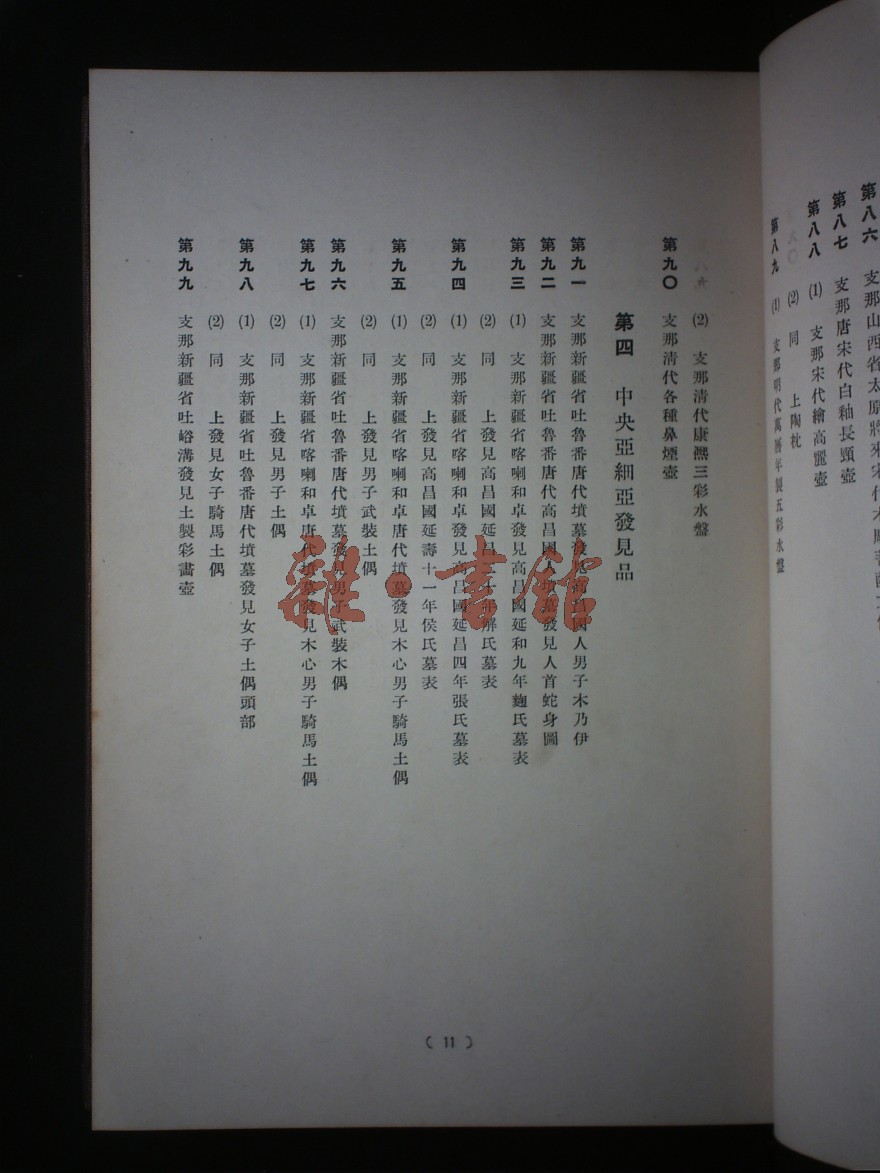 第八六　支那山西省太原將來宋代木彫菩薩
第八七　支那唐宋代白釉長頸壺
第八八　(1)　支那宋代繪高麗壺
(2)　同　上陶枕
第八九　(1)　支那明代萬曆年製五彩水盤
(2)　支那清代康熙三彩水盤
第九〇　支那清代各種鼻煙壺
第四　中央亞細亞發見品
第九一　支那新疆省吐魯番唐代墳墓發見高昌國人男子木乃伊
第九二　支那新疆省吐魯番唐代高昌國人墳墓發見人首蛇身圖
第九三　(1)　支那新疆省喀喇和卓發見高昌國延和九年麴氏墓表
(2)　同　上發見高昌國延昌三十年解氏墓表
第九四　(1)　支那新疆省喀喇和卓發見高昌國延昌四年張氏墓表
(2)　同　上發見高昌國延壽十一年侯氏墓表
第九五　(1)　支那新疆省喀喇和卓唐代墳墓發見木心男子騎馬土偶
(2)　同　上發見男子武裝土偶
第九六　支那新疆省吐魯番唐代墳墓發見男子武裝木偶
第九七　(1)　支那新疆省喀喇和卓唐代墳墓發見木心男子騎馬土偶
(2)　同　上發見男子土偶
第九八　(1)　支那新疆省吐魯番唐代墳墓發見女子土偶頭部
(2)　同　上發見女子騎馬土偶
第九九　支那新疆省吐峪溝發見土製彩畫壺
( 11 )
雜·書館